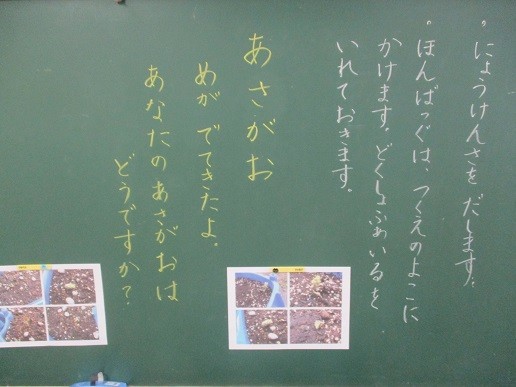 ・にょうけんさを だします。
・ほんばっぐは、つくえのよこに
かけます。どくしょふぁいるを
いれておきます。
あさがお
めが でてきたよ。
あなたのあさがおは
どうですか?